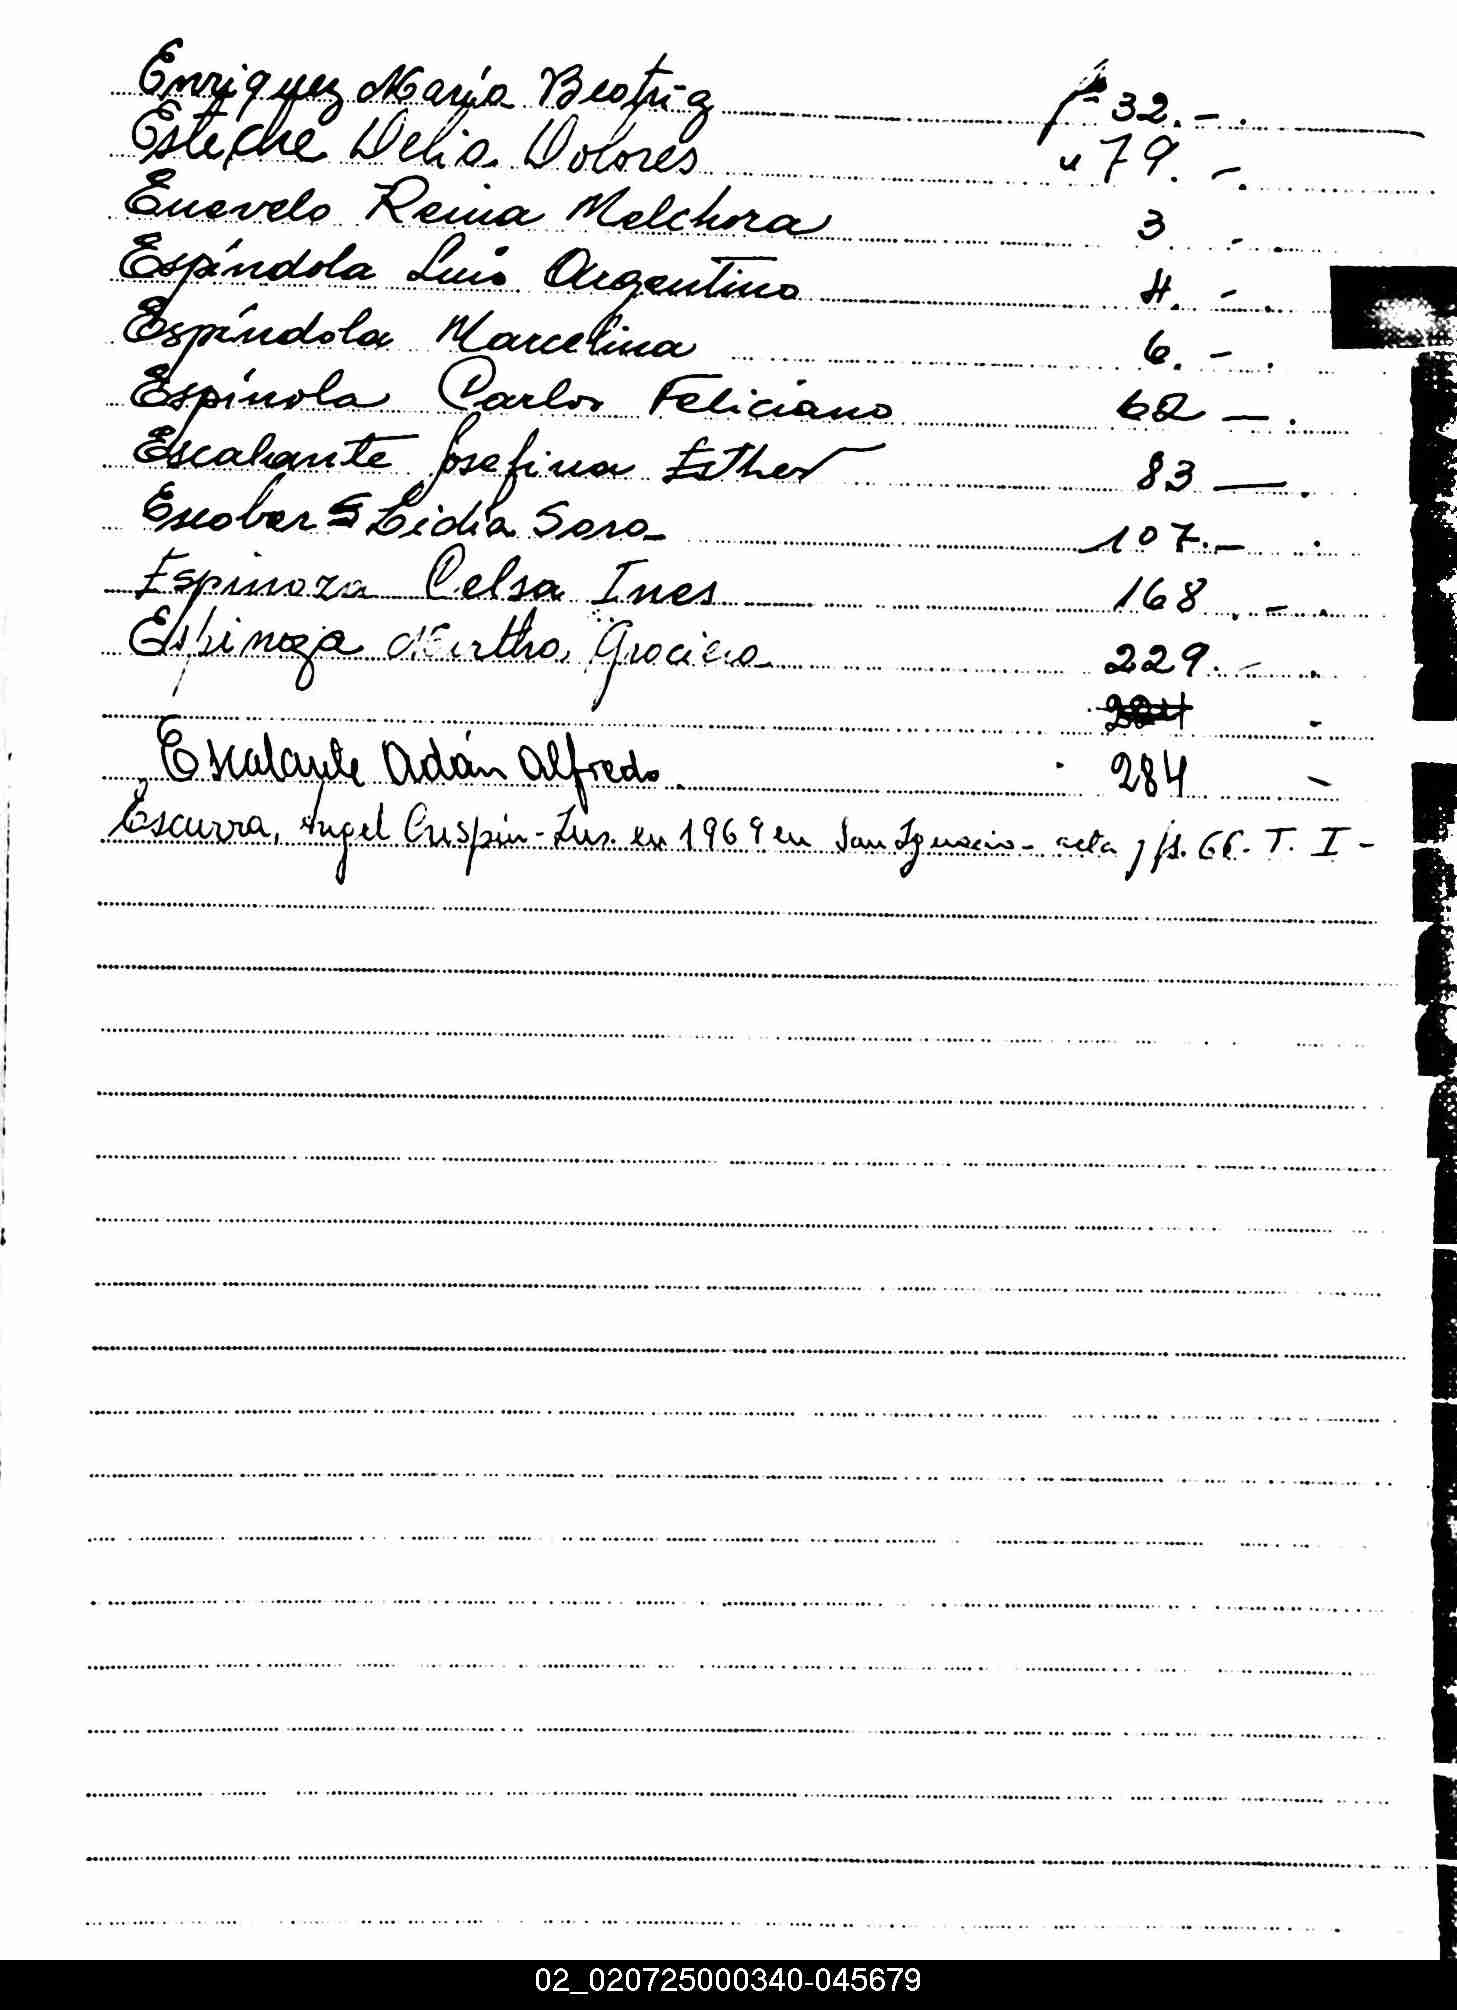 Enriquez María Beatriz fs 32.-.
Esteche Delia Dolores " 79.-.
Enevelo Reina Melchora 3 - .
Espíndola Luis Argentino 4. - .
Espíndola Marcelina 6. - .
Espínola Carlos Feliciano 62 - .
Escalante Josefina Esther 83 - .
Escobar Lidia Sara 107.- .
Espinoza Celsa Ines 168 . - .
Espinoza Mirtha Graciela 229.- .
Escalante Adán Alfredo. 284 -
Escurra, Angel Crispín - Ins. en 1969 en San Ignacio - acta fs. 66. T. I -
02_020725000340-045679